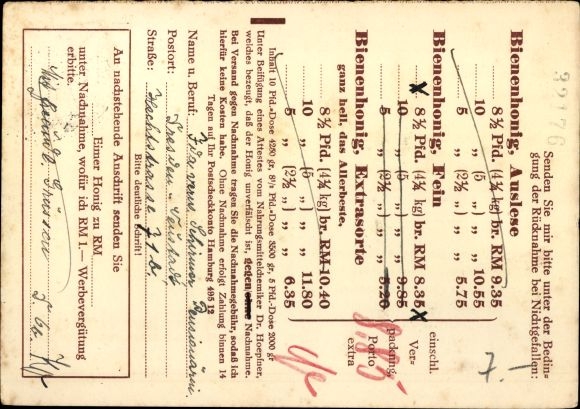 32176
Senden Sie mir bitte unter der Bedin-
gung der Rücknahme bei Nichtgefallen:
Bienenhonig, Auslese
8½ Pfd. (4¼ kg) br. RM 9.35
10 „ (5 „ ) „ „ 10.55
5 „ (2½ „ ) „ „ 5.75
7.-
Bienenhonig, Fein
x 8½ Pfd. (4¼ kg) br. RM 8.35 x
10 „ (5 „ ) „ „ 9.85
5 „ (2½ „ ) „ „ 5.20
einschl.
Ver-
packung,
Porto
extra
8.85
Bienenhonig, Extrasorte
ganz hell, das Allerbeste.
8½ Pfd. (4¼ kg) br. RM 10.40
10 „ (5 „ ) „ „ 11.80
5 „ (2½ „ ) „ „ 6.35
Inhalt 10 Pfd.-Dose 4250 gr, 8½ Pfd.-Dose 3500 gr, 5 Pfd.-Dose 2000 gr
Unter Beifügung eines Attestes vom Nahrungsmittelchemiker Dr. Hoepfner,
welches bezeugt, daß der Honig unverfälscht ist, gegen ohne Nachnahme.
Bei Versand gegen Nachnahme tragen Sie die Nachnahmegebühr, sodaß ich
hierfür keine Kosten habe. Ohne Nachnahme erfolgt Zahlung binnen 14
Tagen auf Ihr Postscheckkonto Hamburg 495 12
Name u. Beruf: Ida verw. Schirmer Pensionärin.
Postort: Dresden-Neustadt
Straße: Hechtstrasse 71 b.
Bitte deutliche Schrift!
An nachstehende Anschrift senden Sie
Eimer Honig zu RM
unter Nachnahme, wofür ich RM 1.— Werbevergütung
erbitte.